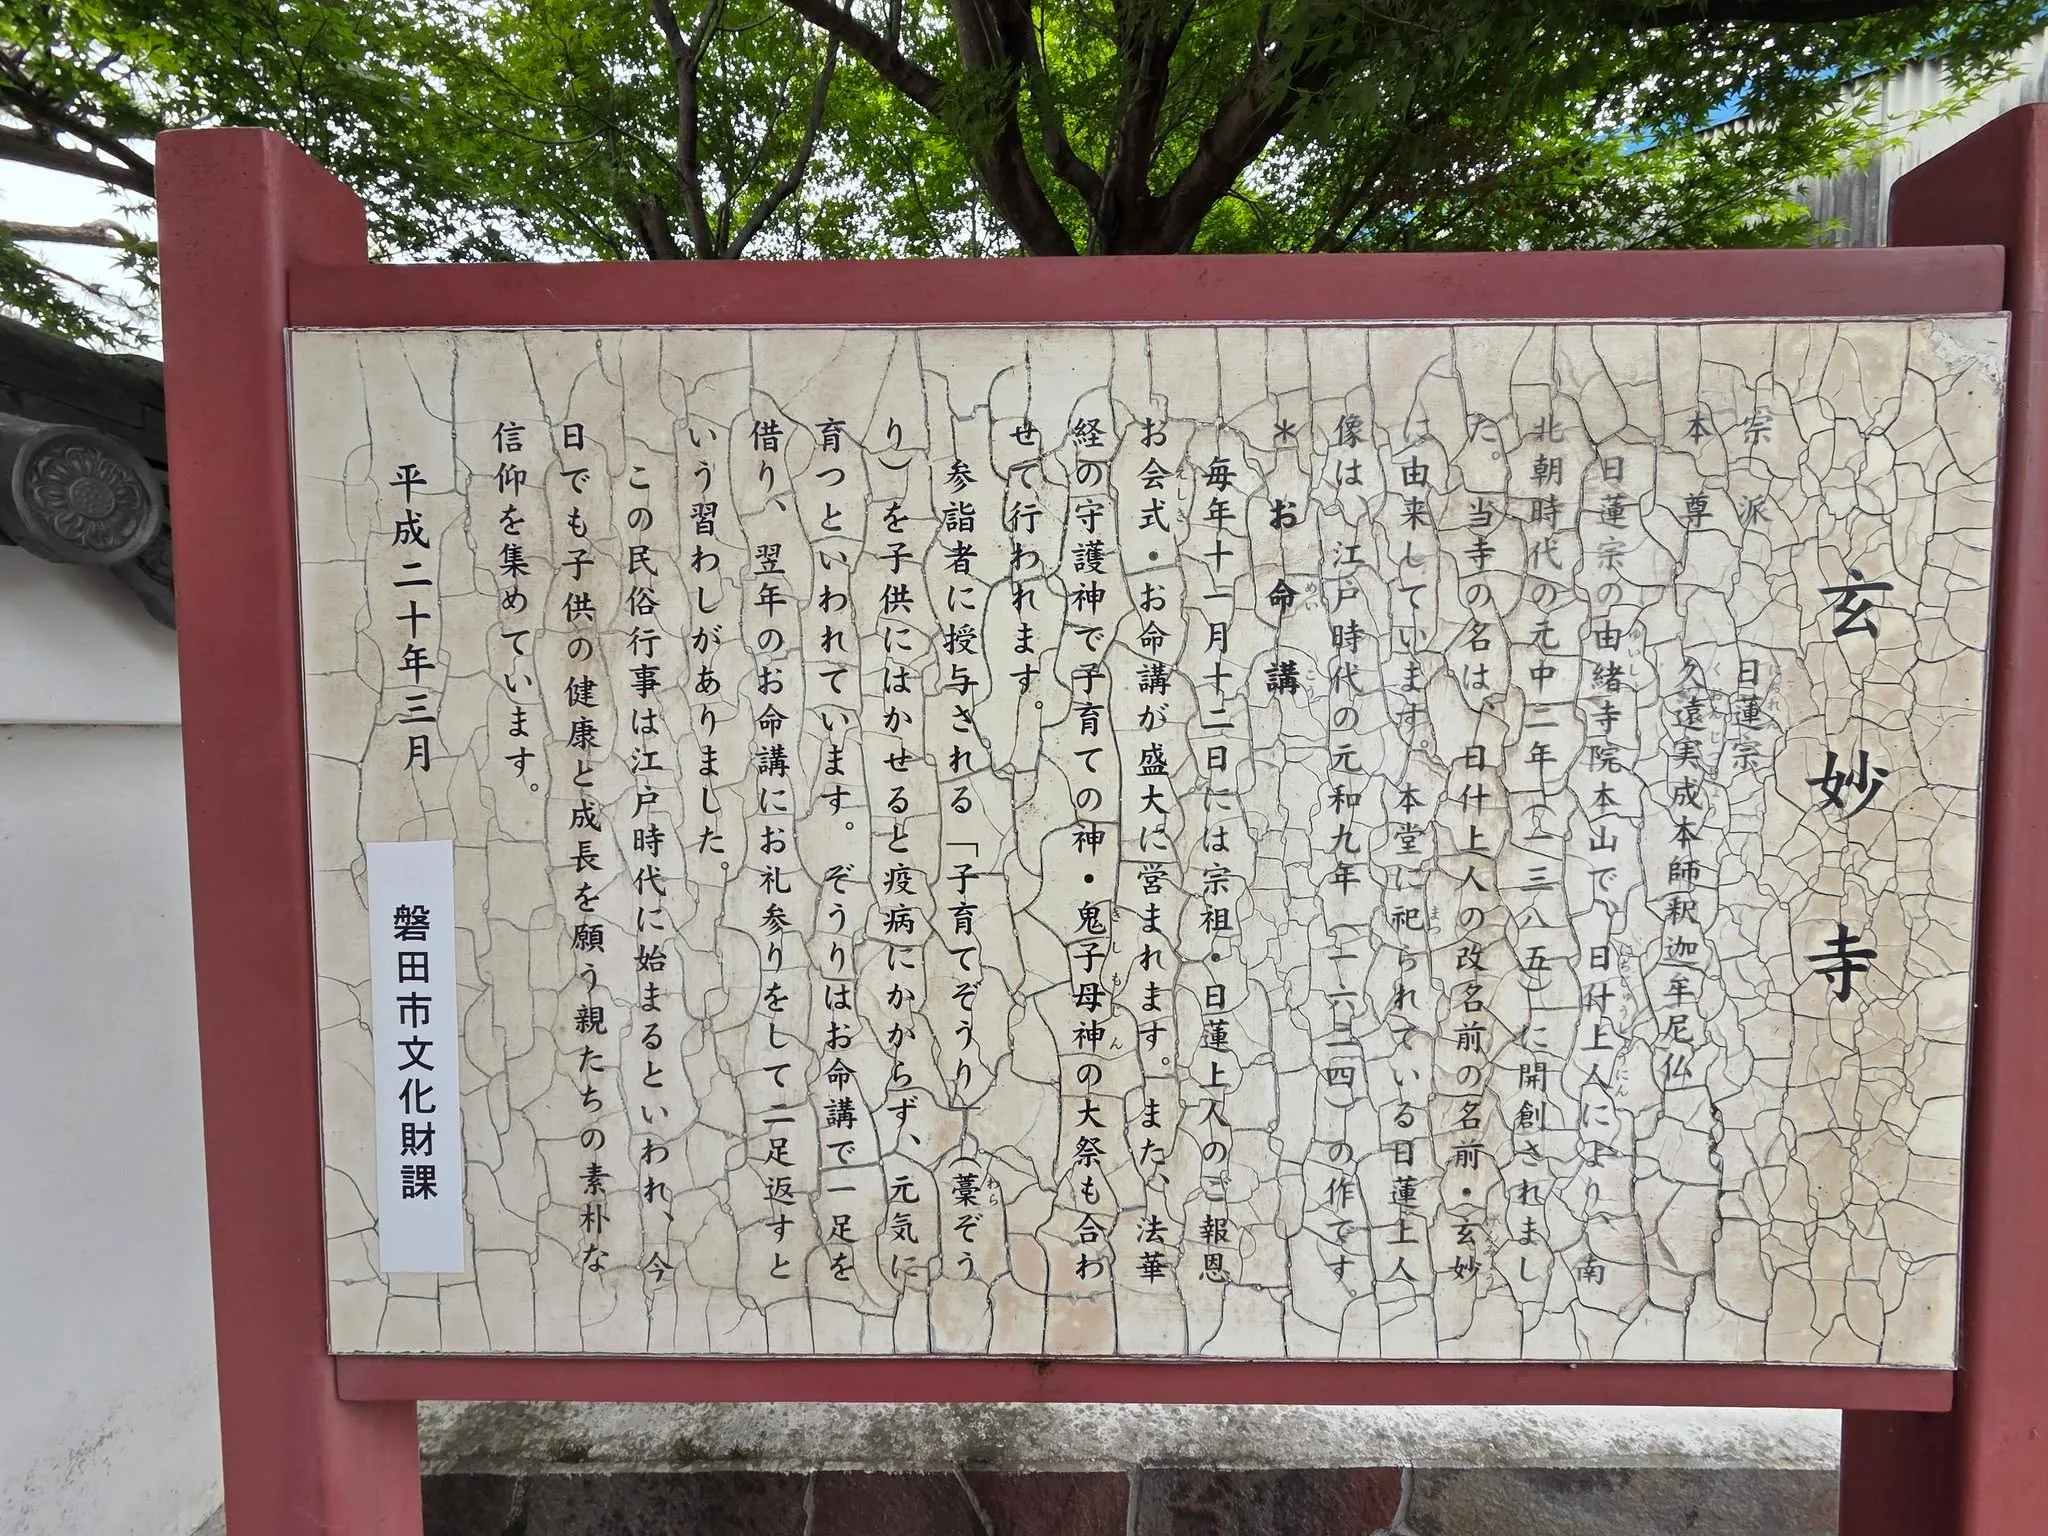 玄妙寺
宗派 日蓮宗
本尊 久遠実成本師釈迦牟尼仏
日蓮宗の由緒寺院本山で、日什上人により、南
北朝時代の元中二年(一三八五)に開創されまし
た。当寺の名は、日什上人の改名前の名前・玄妙
は由来しています。本堂に祀られている日蓮上人
像は、江戸時代の元和九年(一六二四)の作です。
*お命講
毎年十一月十二日には宗祖・日蓮上人のご報恩
お会式・お命講が盛大に営まれます。また、法華
経の守護神で子育ての神・鬼子母神の大祭も合わ
せて行われます。
参詣者に授与される「子育てぞうり」(藁ぞう
り)を子供にはかせると疫病にかからず、元気に
育つといわれています。ぞうりはお命講で一足を
借り、翌年のお命講にお礼参りをして二足返すと
いう習わしがありました。
この民俗行事は江戸時代に始まるといわれ、今
日でも子供の健康と成長を願う親たちの素朴な
信仰を集めています。
平成二十年三月
磐田市文化財課